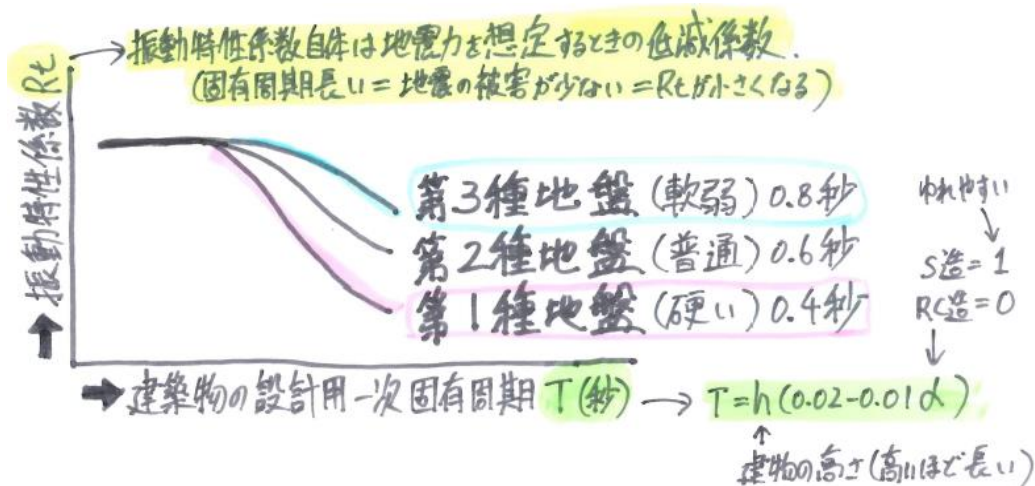 振動特性係数自体は地震力を想定するときの低減係数.
(固有周期長い=地震の被害が少ない=Rtが小さくなる)
➡振動特性係数 Rt
第3種地盤(軟弱)0.8秒
第2種地盤(普通)0.6秒
第1種地盤(硬い)0.4秒
ゆれやすい
S造=1
RC造=0
➡建築物の設計用一次固有周期 T(秒)→T=h(0.02-0.01α)
建物の高さ(高いほど長い)